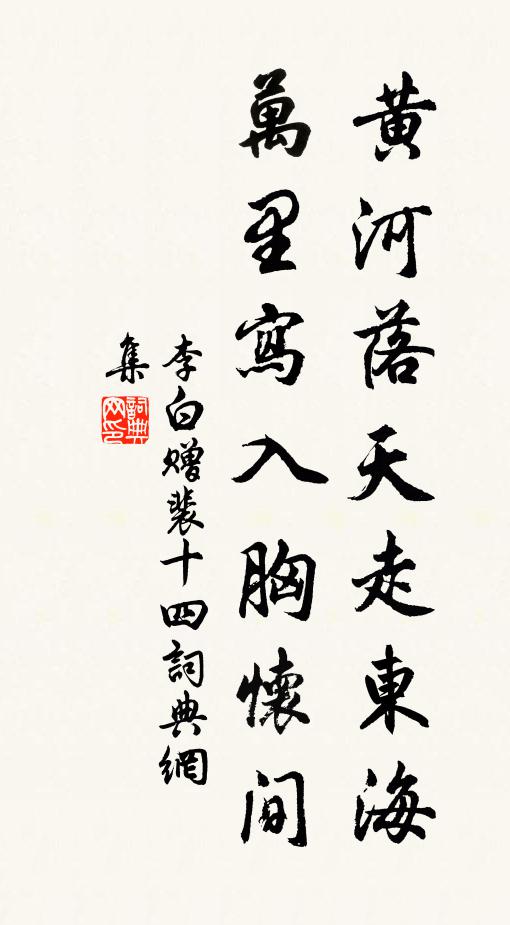 黄河落天走東海
萬里寫入胸懷间
李白赠裴十四詞典網
集
詞典網印